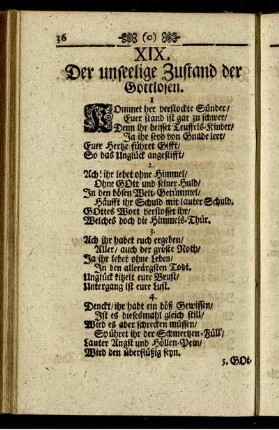 36 (0)
XIX.
Der unseelige Zustand der
Gottlosen.
1
KOmmet her verstockte Sünder/
Euer stand ist gar zu schwer/
Denn ihr heisset Teuffels-Kinder/
Ja ihr seyd von Gnade leer/
Euer Hertze führet Gifft/
So das Unglück angestifft/
2.
Ach! ihr lebet ohne Himmel/
Ohne GOtt und seiner Huld/
In den bösen Welt-Getümmel/
Häufft ihr Schuld mit lauter Schuld.
GOttes Wort verstosset ihr/
Welches doch die Himmels-Thür.
3.
Ach ihr habet euch ergeben/
Aller/ auch der gröste Noth/
Ja ihr lebet ohne Leben/
In den allerärgsten Todt.
Unglück kitzelt eure Brust/
Untergang ist eure Lust.
4.
Denckt/ ihr habt ein böß Gewissen/
Ist es diesesmahl gleich still/
Wird es aber schrecken müssen/
So rühret ihr der Schmertzen-Füll/
Lauter Angst und Höllen-Pein/
Wird den überflüßig seyn.
5. GOt-